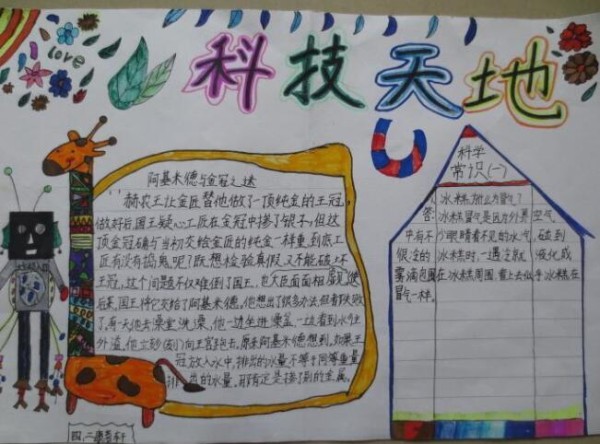 love
科技天地
阿基米德与金冠之迷
赫农王让金匠替他做了一顶纯金的王冠,
做好后,国王疑心工匠在金冠中掺了银子,但这
顶金冠确与当初交给金匠的纯金一样重,到底工
匠有没有捣鬼呢?既想检验真假,又不能破坏
王冠,这个问题不仅难倒了国王,也大臣面面相觑
后来,国王将它交给了阿基米德,他想出了很多办法,但都失败
了,有一天他去澡堂洗澡,他一边坐进澡盆,一边看到水往
外溢,他立刻向王宫跑去,原来阿基米德想到,如果王
冠放入水中,排出的水量不等于同等重量
的水量,那肯定是掺了别的金属。
科学
常识(一)
人 冰糕为什么冒气?
答:冰糕冒气是因为外界空气
中有不少眼睛看不见的水气,碰到
很冷的冰糕时,一遇冷就液化成
雾滴包围在冰糕周围,看上去似乎冰糕在
冒气一样。
四,二